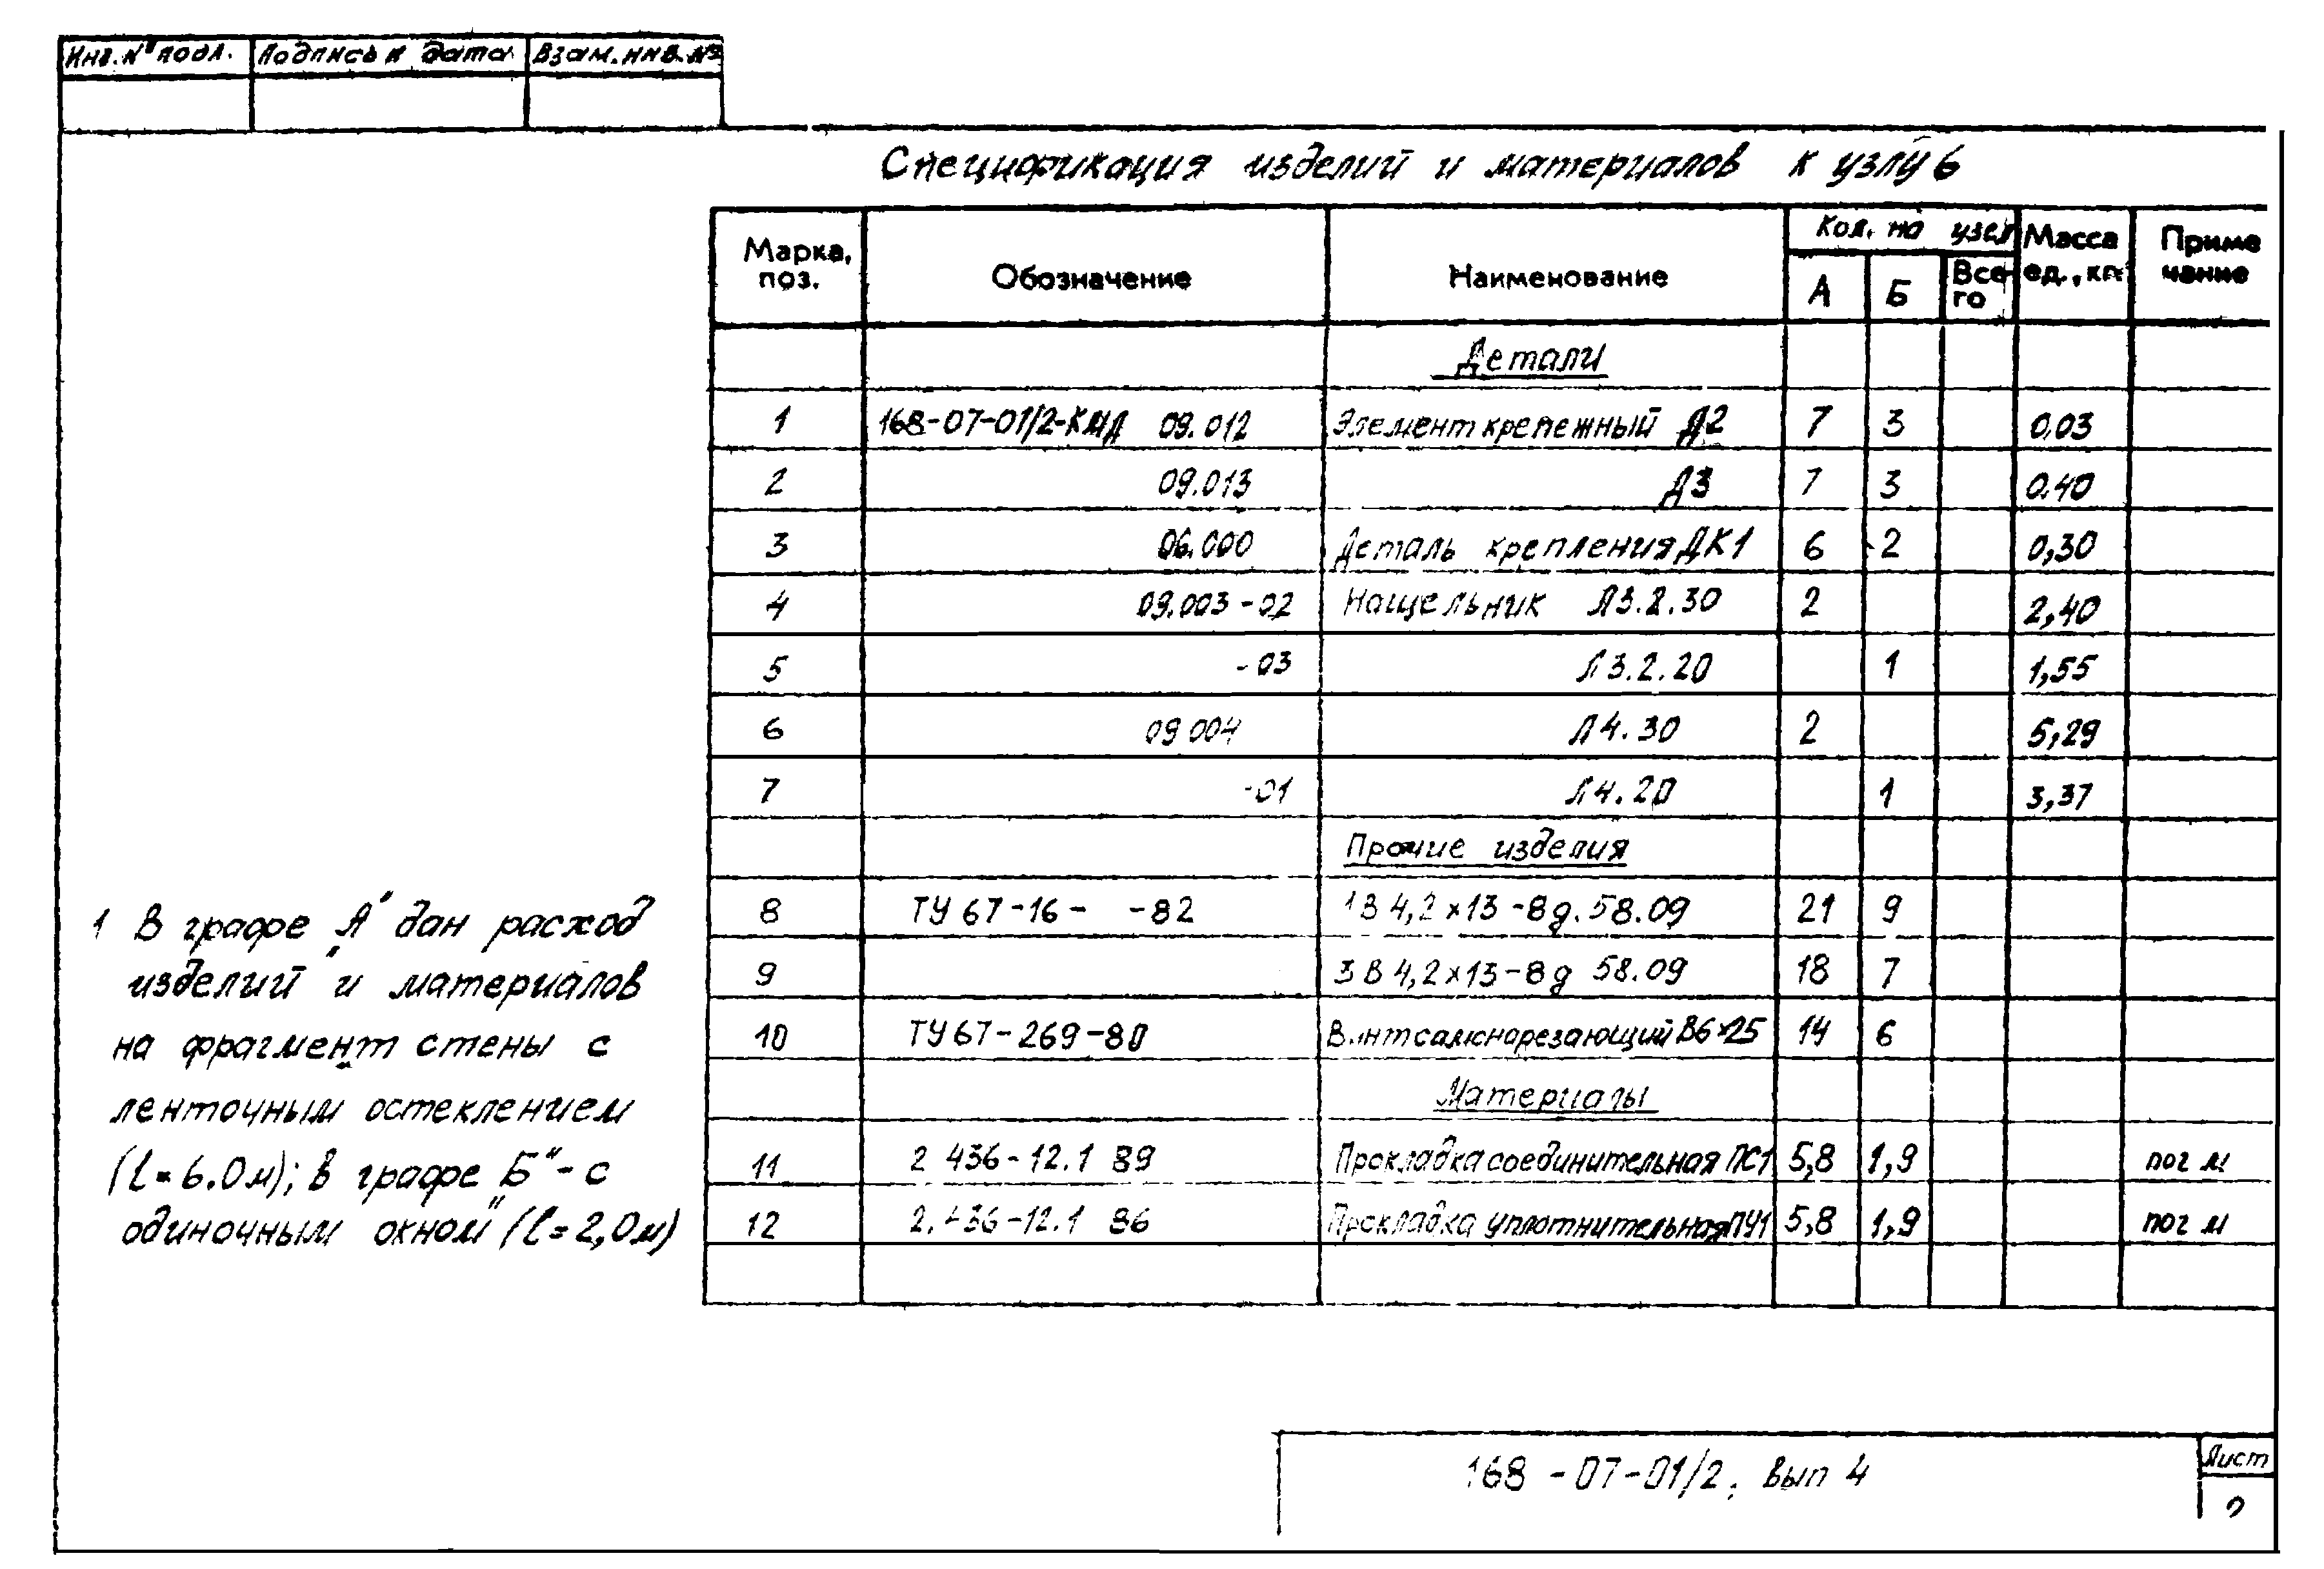 Инв. № подл. Подпись и дата Взам. инв. №
Спецификация изделий и материалов к узлу 6
Марка, поз. Обозначение Наименование Кол. на узел А Б Всего Масса ед., кг Примечание
Детали
1 168-07-01/2-КМД 09.012 Элемент крепежный Д2 7 3 0,03
2 09.013 Д3 7 3 0.40
3 06.000 Деталь крепления ДК1 6 2 0,30
4 09.003-02 Нащельник Л3.2.30 2 2,40
5 -03 Л3.2.20 1 1,55
6 09 004 Л4.30 2 5,29
7 -01 Л4.20 1 3,37
Прочие изделия
8 ТУ 67-16- -82 1В 4,2×13-8д.58.09 21 9
9 3В 4,2×13-8д 58.09 18 7
10 ТУ67-269-80 Винт самонарезающий В6×25 14 6
Материалы
11 2 436-12.1 89 Прокладка соединительная ПС1 5,8 1,9 пог м
12 2.436-12.1 86 Прокладка уплотнительная ПУ1 5,8 1,9 пог м
1 В графе „А" дан расход
изделий и материалов
на фрагмент стены с
ленточным остеклением
(ℓ=6.0м); в графе „Б"-с
одиночным окном (ℓ=2,0м)
168-07-01/2. Вып 4
Лист